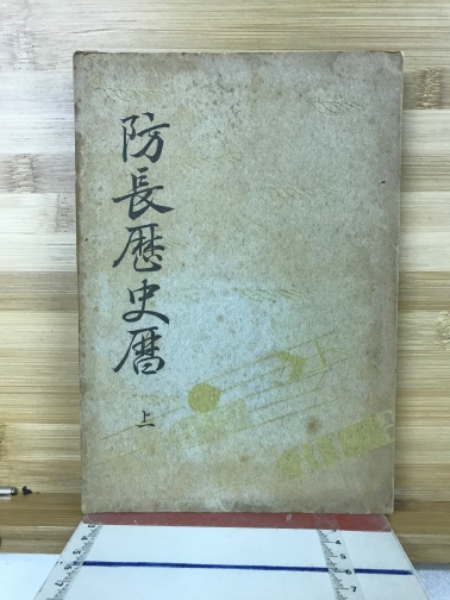 防長歴史暦
上